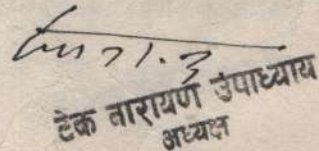 टेक नारायण उपाध्याय
अध्यक्ष